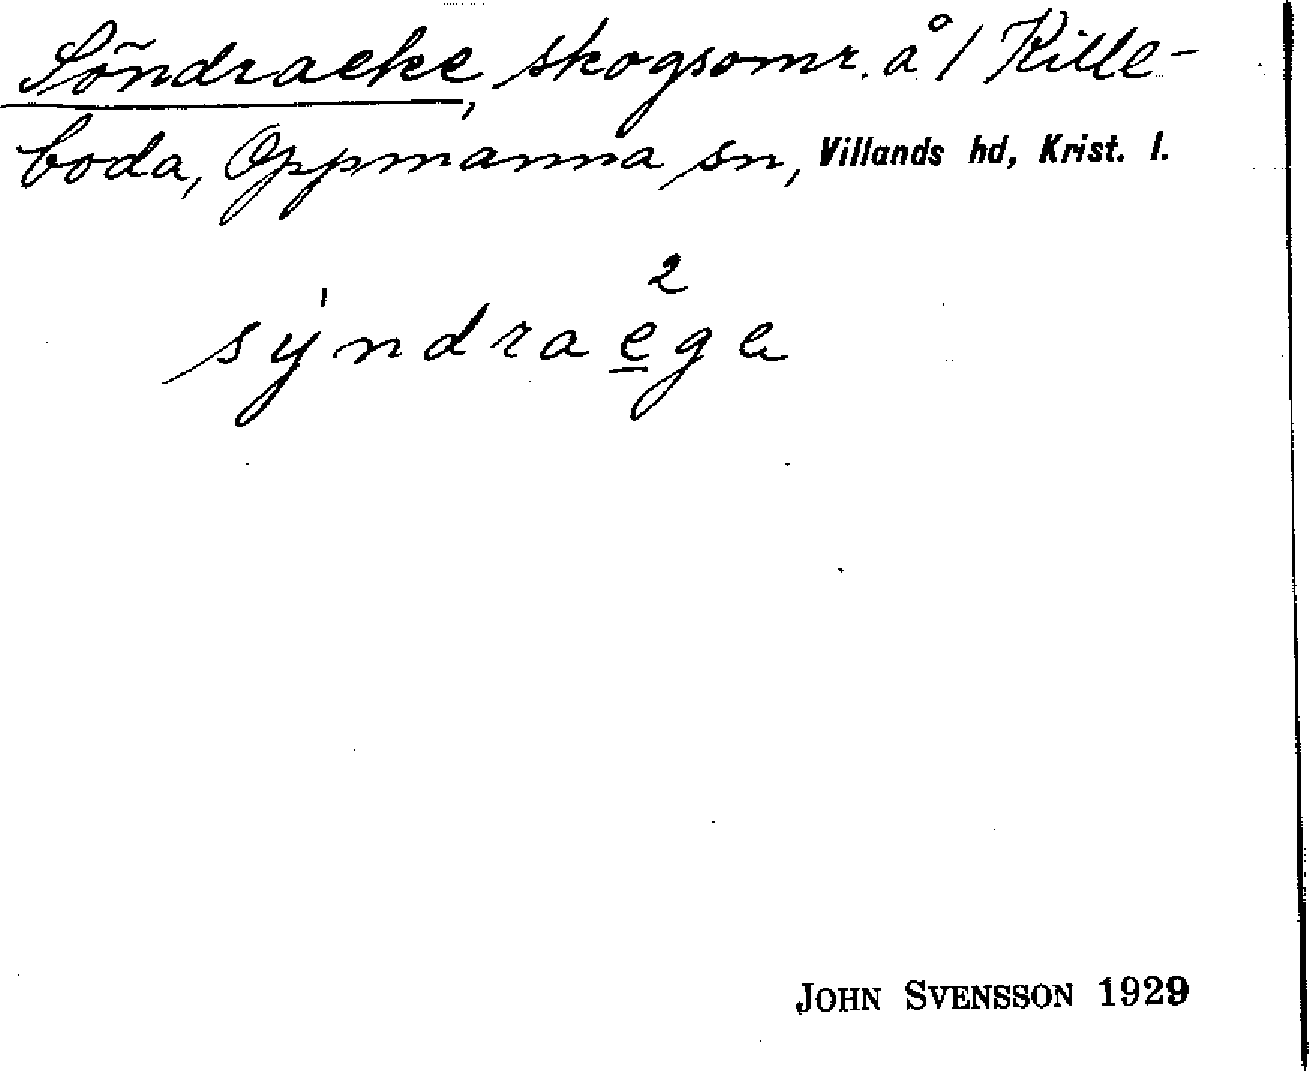 Söndraeke, skogsomr. å / Kille-
boda, Oppmanna sn, Villands hd, Krist. l.
2
sýndraega
JOHN SVENSSON 1929